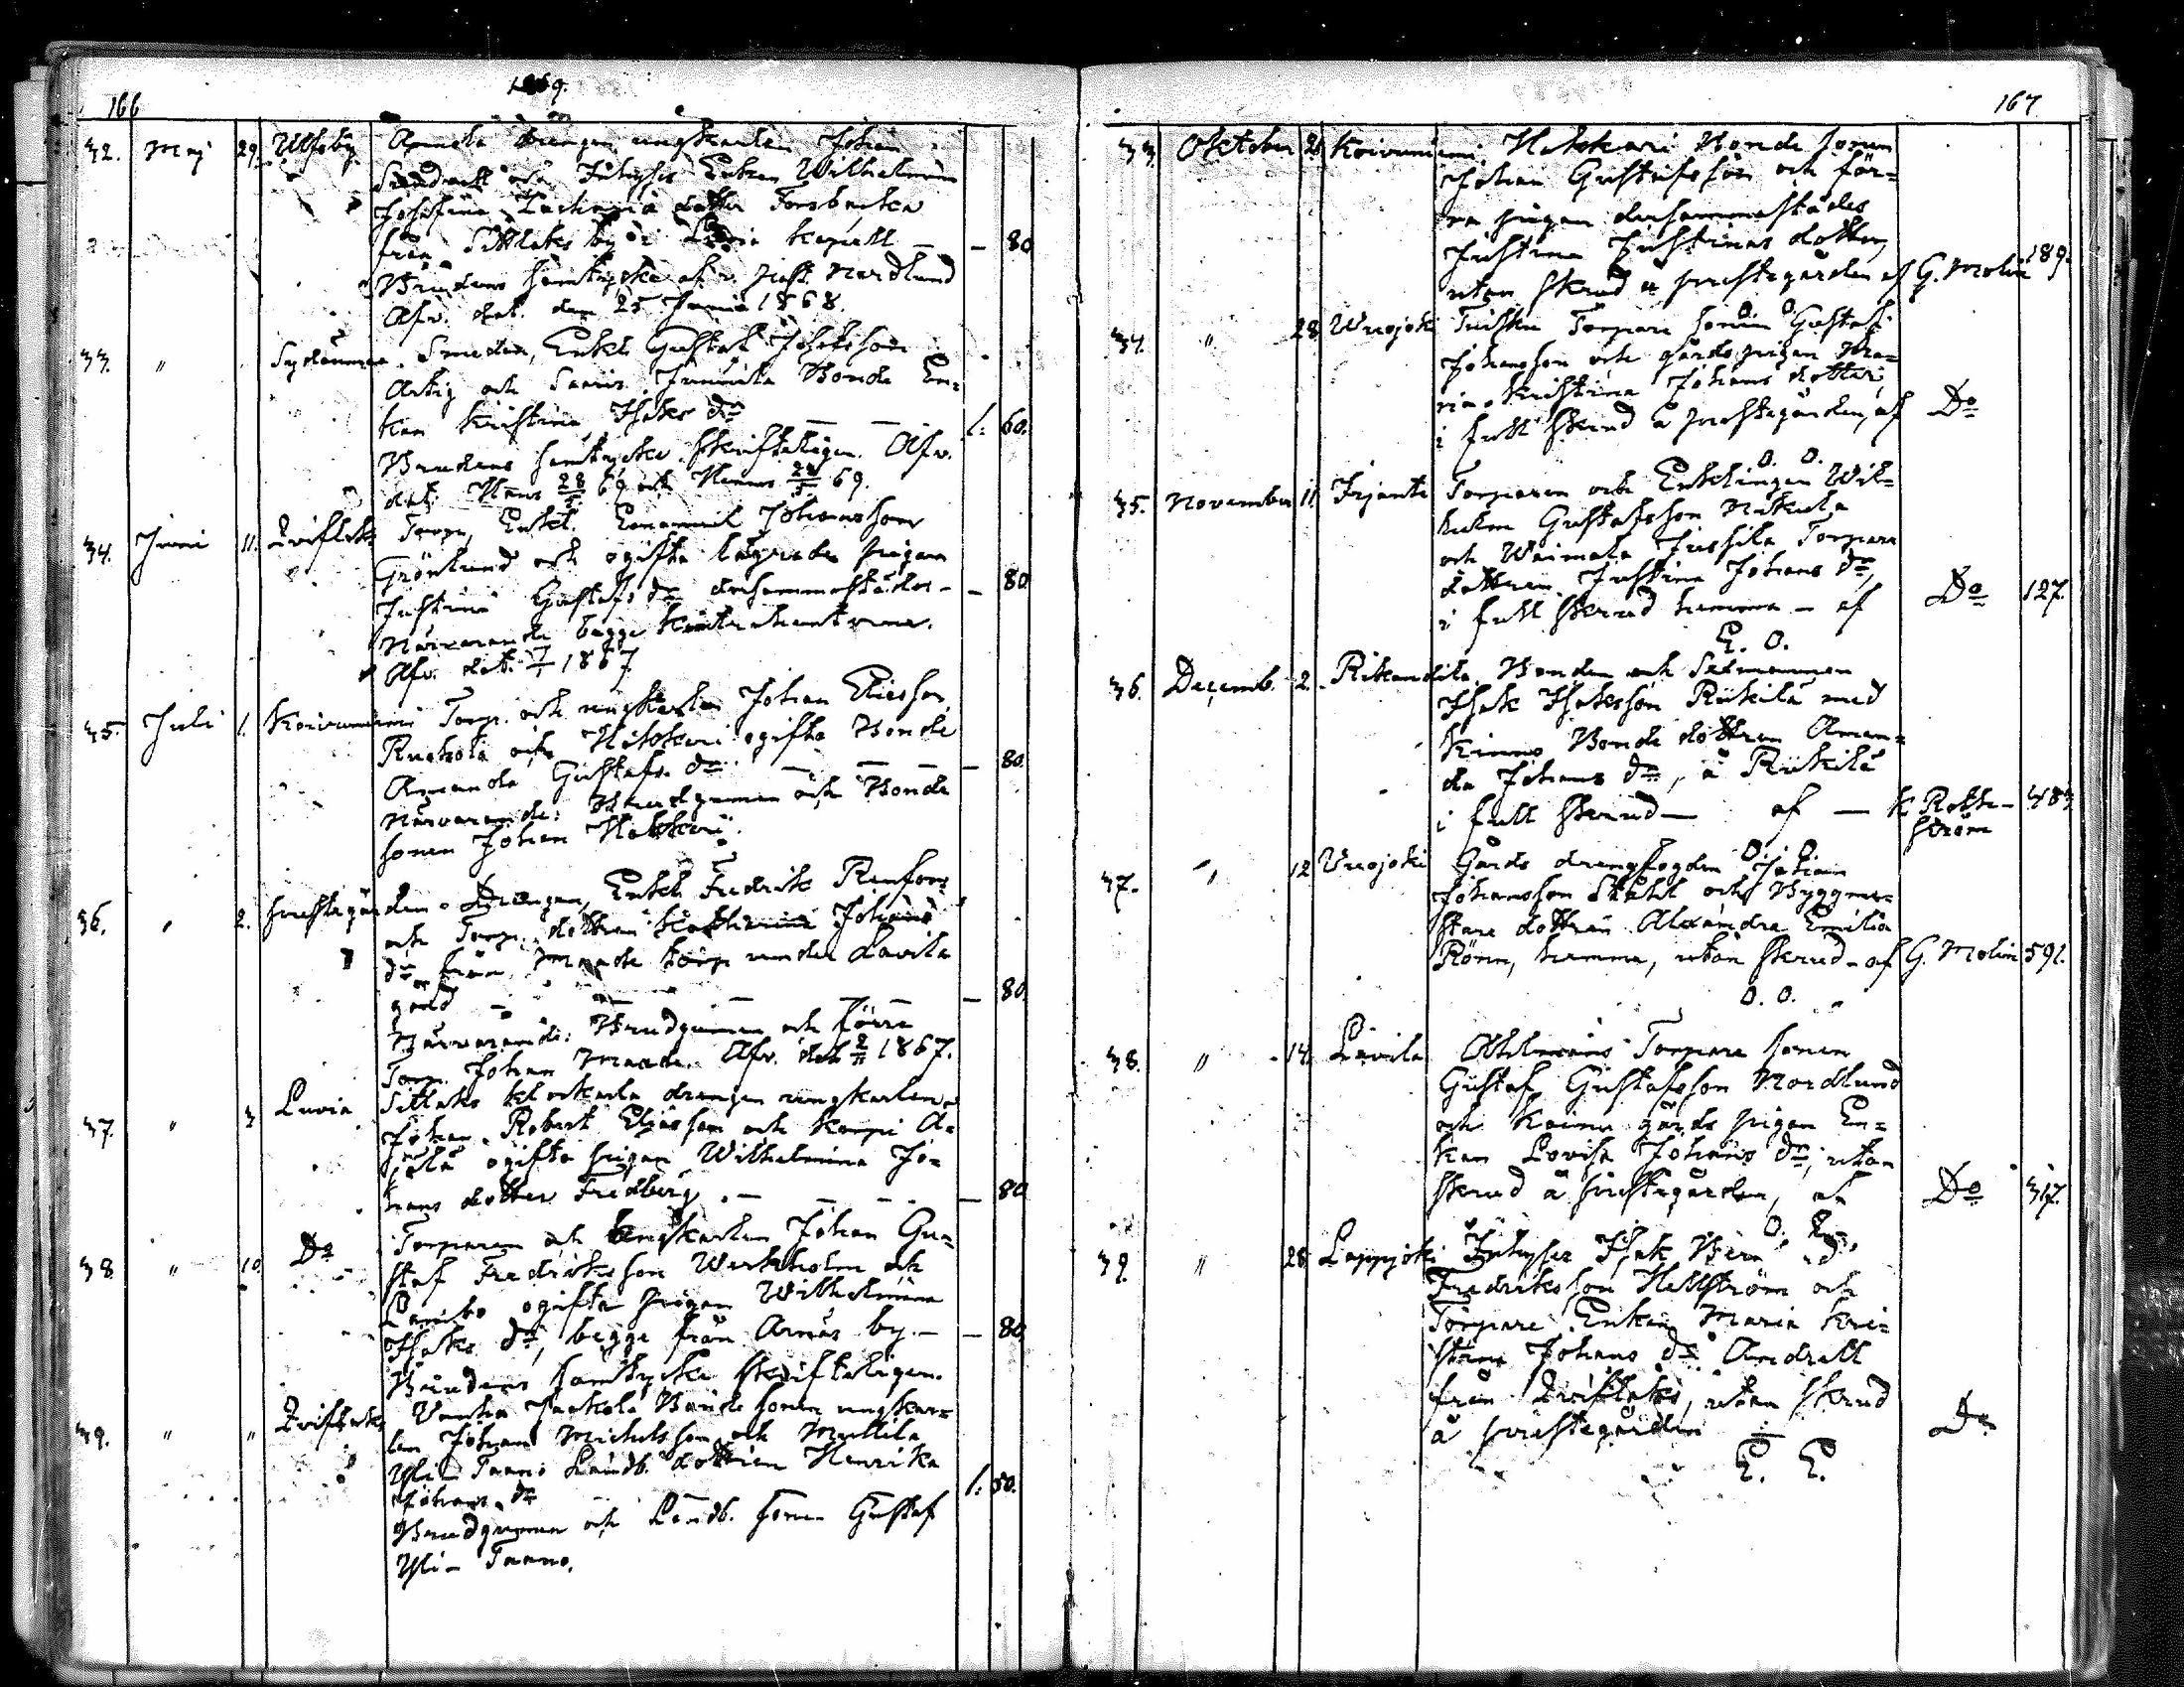 166
1869.
32. Maj 29. Ulfsby Annela Drengen ungkarlen Johan
Sundvall och Inhyses Enkan Wilhelmina
Josefina Zacharia dotter Forsbacka
från Sittlaks by i Luvia Kapell — — 80
Brudens samtycke af v. past. Nordlund
Afv. dat. den 25 Junii 1868.
33. " Sydänmaa. Smeden, Enkl. Gustaf Josefsson
Artig och Saaris Junnila Bonde En-
kan Kristina Isaks dr — — 1. 60.
Brudens samtycke skrifteligen. Afv.
34. Juni 11. Qvifl. Torp. Enkl. Emanuel Johansson
Grönlund och ogifta lägrade pigan
Justina Gustafs dr dersammastädes — — 80
Närvarande begge kontrahenterne.
Afv. dat. 1867
35. Juli 1. Koivuniemi Torp. och ungkarlen Johan Eliesson
Ruohola och Hakkari ogifta Bonde
Amanda Gustafs dr — — — — 80
Närvarande: Brudgumen och Bonde
sonen Johan Hakkari.
36. " 2. Prestegården. Drengen, Enkl. Fredrik Renfors
och Torp. dottren Katharina Johans
dr från Maade torp under Lavila
gård — — — — — 80.
Närvarande: Brudgumen och förre
Torp. Johan Maade. Afv. dat 1867.
37. " 3 Luvia Sittlaks klockarla drengen ungkarlen
Johan Robert Eliasson och Korpi A-
jola ogifta pigan Wilhelmina Jo-
hans dotter Fredberg. — — — — 80
38. " 10. Do Torparen och Ungkarlen Johan Gu-
staf Fredriksson Werkholm och
ogifta pigan Wilhelmina
Isaks dr, begge från Arnäs by — — 80
Brudens samtycke skrifteligen.
39. " " Qviflaks Vanha Jaakola Bonde sonen ungkar-
len Johan Michelsson och Mullila
Yli-Taano Landb. dottren Henrika
Johans dr 1. 50.
Brudgumen och Landb. sonen Gustaf
Yli-Taano.
167
33. Oktober Koivuniemi. Hakkari Bonde sonen
Johan Gustafsson och för-
ra pigan dersammastädes
Justina Justinas dotter,
utan skrud å prestegården af G. Molin 189.
O. O.
34. " 28 Wuojoki Torpare sonen Gustaf
Johansson och gårds pigan Ma-
ria Kristina Johans dotter,
i full skrud å prestegården, af Do
O. O.
35. November 11. Irjanti Torparen och Enklingen Wil-
helm Gustafsson Nikula
och Waimala Jussila Torpare
dottren Justina Johans dr,
i full skrud hemma — af Do 127.
E. O.
36. Decemb. 2. Rikandila. Bonden och Sexmannen
Isak Isaksson Riikilä med
Kinno Bonde dottren Aman-
da Johans dr, å Riikilä
i full skrud — af — K Roth-
ström
37. " 12 Wuojoki Gårds drengfogden Johan
Johansson Ståhl och Byggmä-
stare dottren Alexandra Emilia
Rönn, hemma, utan skrud — af G. Molin 591.
O. O.
38. " 14. Lavila Torpare sonen
Gustaf Gustafsson Nordlund
och Kaino gårds pigan En-
kan Lovisa Johans dr, utan
skrud å prestegården, af Do 317.
O. E.
39. " 28 Lappjoki Inhyses Isak
Fredriksson Hellström och
Torpare Enkan Maria Kri-
stina Johans dr Andrell
från Qviflaks, utan skrud
å prestegården Do
E. E.